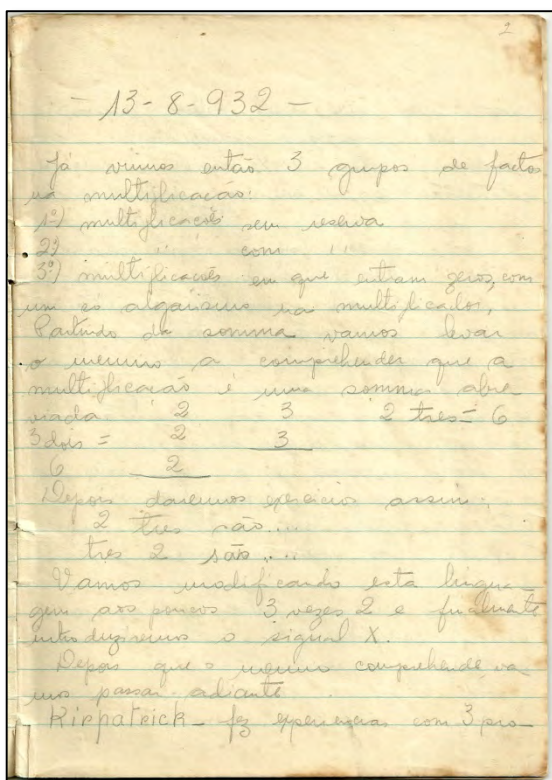 2
- 13-8-932 -
Já vimos então 3 grupos de factos
na multiplicação:
1º) multiplicações sem reserva
2º) " com "
3º) multiplicações em que entram zeros, com
um só algarismo no multiplicador,
Partindo da somma vamos levar
o menino a comprehender que a
multiplicação é uma somma abre
viada 2 3 2 tres = 6
3 dois = 2 3
6 2
Depois daremos exercicio assim:
2 tres são....
tres 2 são....
Vamos modificando esta lingua
gem aos poucos 3 vezes 2 e finalmente
introduziremos o signal X.
Depois que o menino comprehende va
mos passar adiante.
Kirpatrick - fez experiencias com 3 pro-